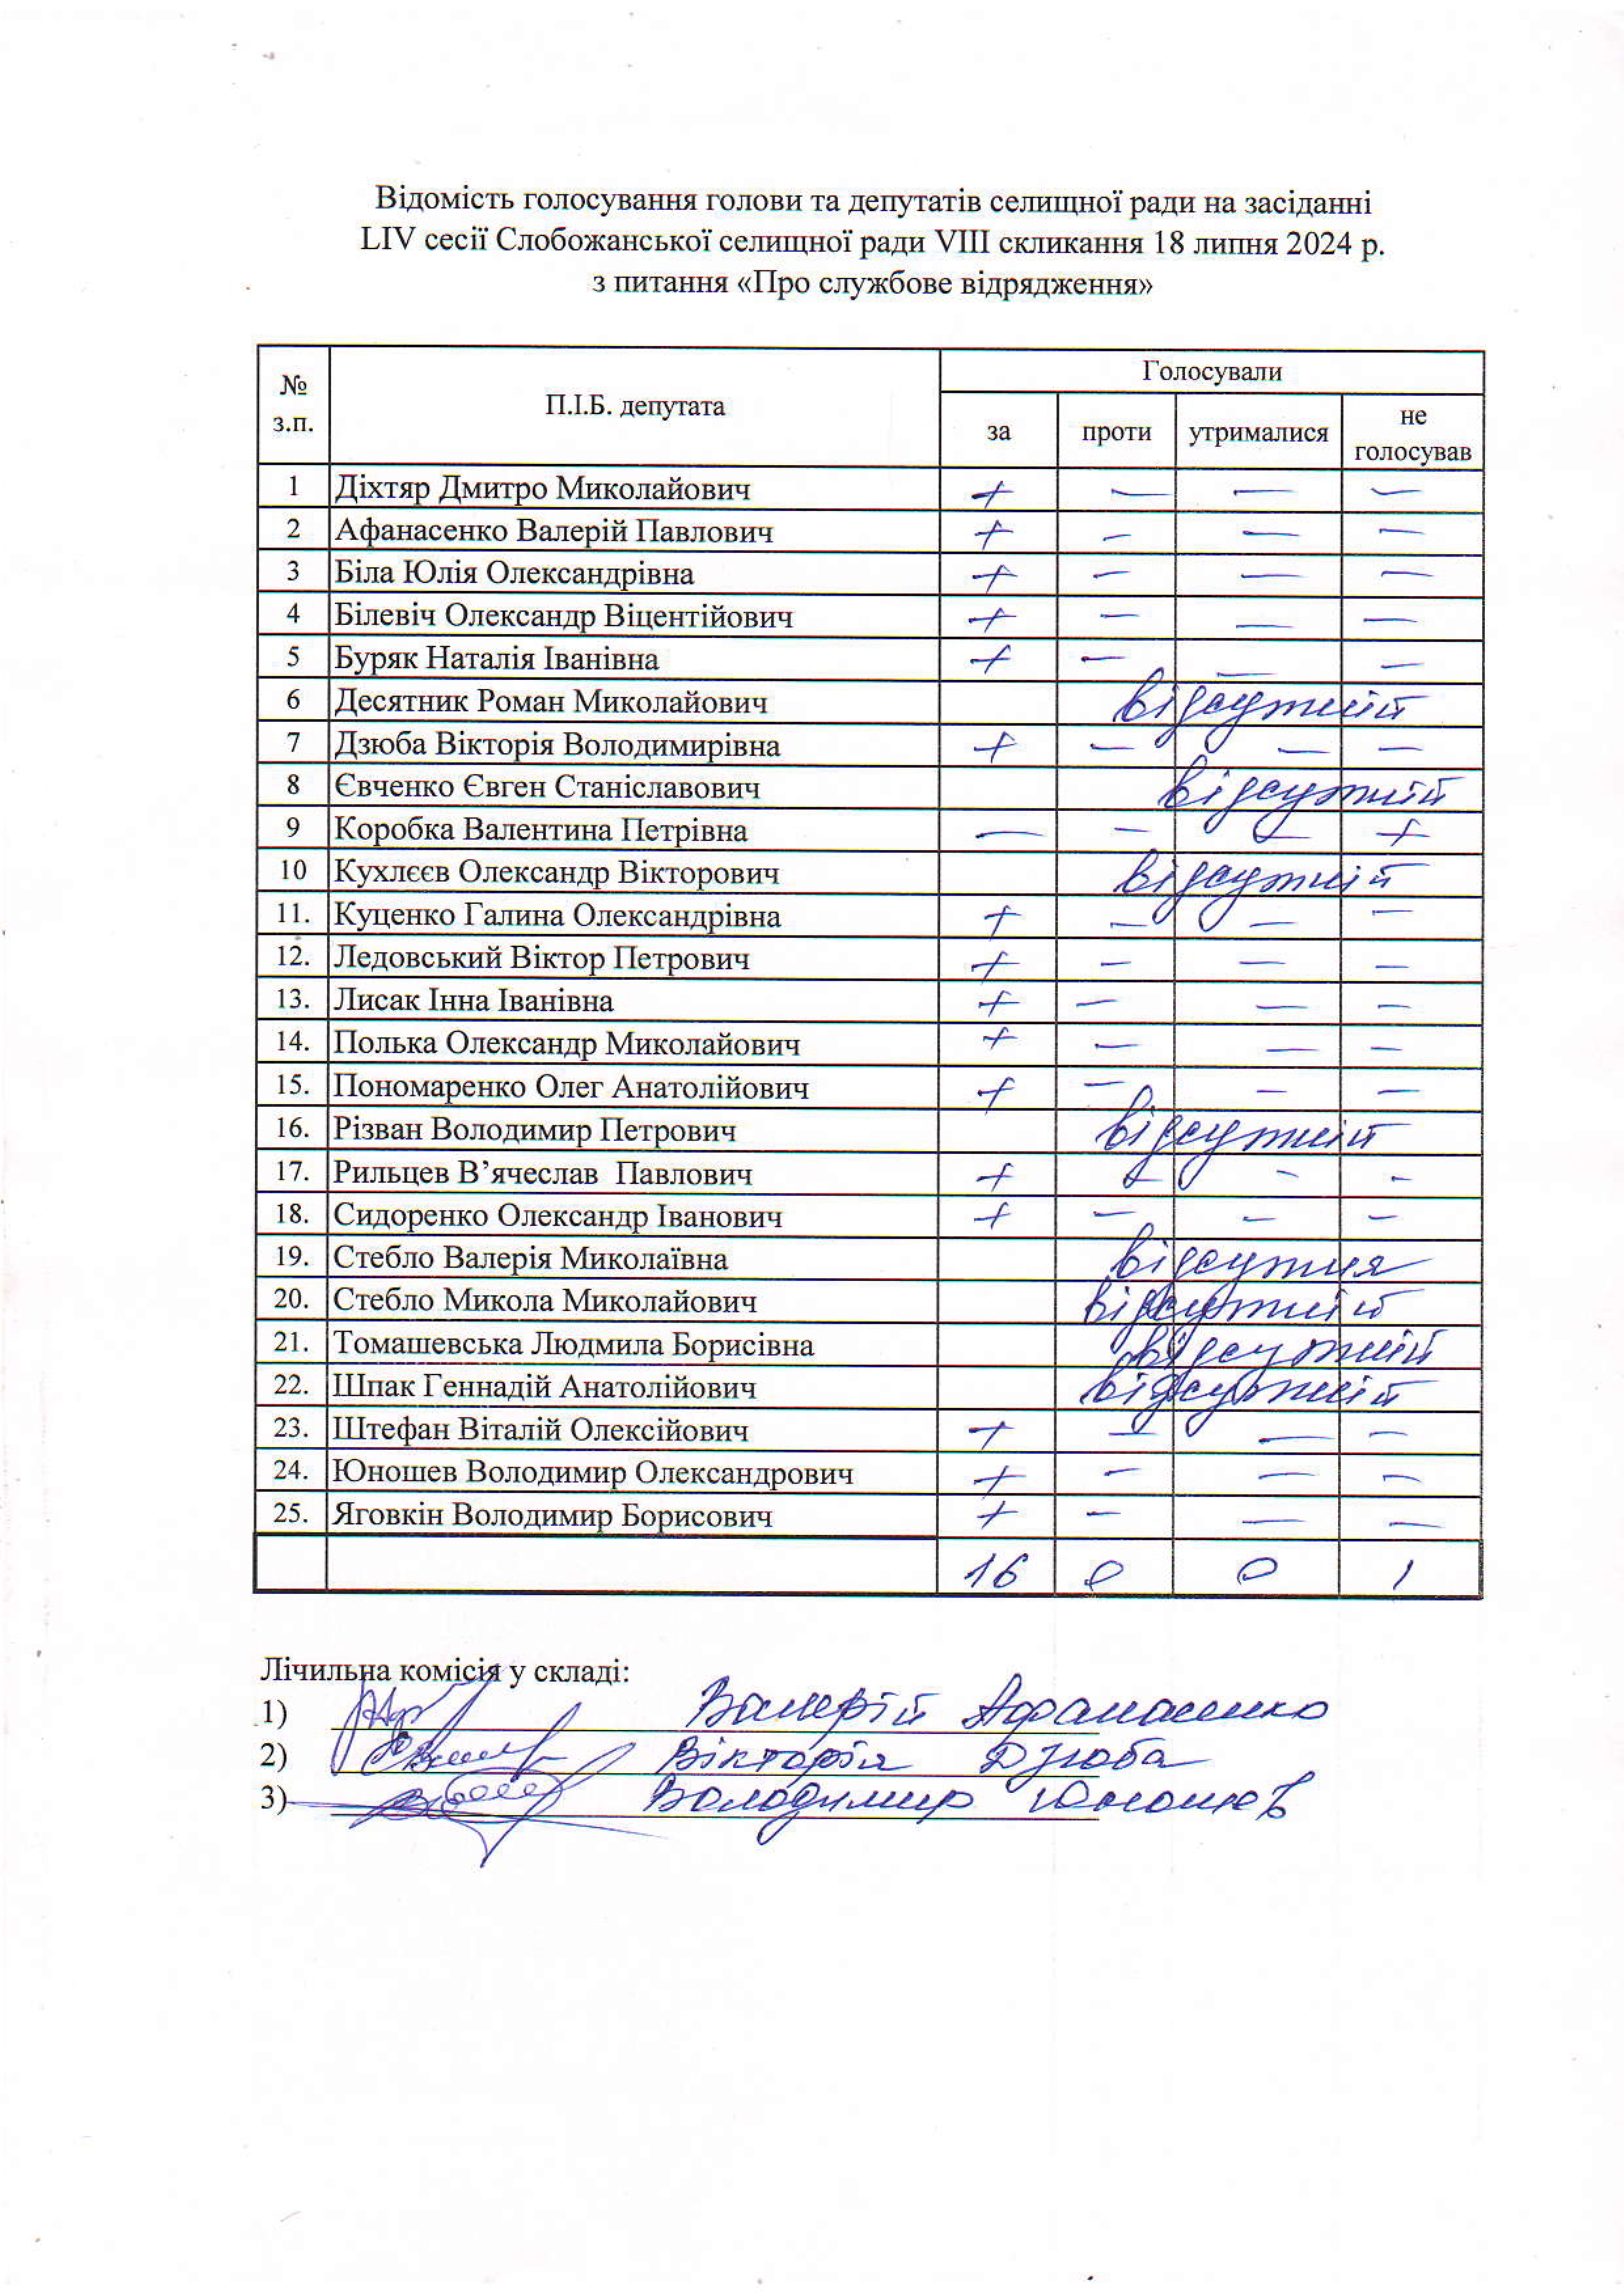 Відомість голосування голови та депутатів селищної ради на засіданні
LIV сесії Слобожанської селищної ради VIII скликання 18 липня 2024 р.
з питання «Про службове відрядження»
№ з.п. П.І.Б. депутата Голосували
за проти утрималися не голосував
1 Діхтяр Дмитро Миколайович + — — —
2 Афанасенко Валерій Павлович + — — —
3 Біла Юлія Олександрівна + — — —
4 Білевіч Олександр Віцентійович + — — —
5 Буряк Наталія Іванівна + — — —
6 Десятник Роман Миколайович відсутній
7 Дзюба Вікторія Володимирівна + — — —
8 Євченко Євген Станіславович відсутній
9 Коробка Валентина Петрівна — — — +
10 Кухлєєв Олександр Вікторович відсутній
11. Куценко Галина Олександрівна + — — —
12. Ледовський Віктор Петрович + — — —
13. Лисак Інна Іванівна + — — —
14. Полька Олександр Миколайович + — — —
15. Пономаренко Олег Анатолійович + — — —
16. Різван Володимир Петрович відсутній
17. Рильцев В’ячеслав Павлович + — — —
18. Сидоренко Олександр Іванович + — — —
19. Стебло Валерія Миколаївна відсутня
20. Стебло Микола Миколайович відсутній
21. Томашевська Людмила Борисівна відсутній
22. Шпак Геннадій Анатолійович відсутній
23. Штефан Віталій Олексійович + — — —
24. Юношев Володимир Олександрович + — — —
25. Яговкін Володимир Борисович + — — —
16 0 0 1
Лічильна комісія у складі:
1) Валерій Афанасенко
2) Вікторія Дзюба
3) Володимир Юношев